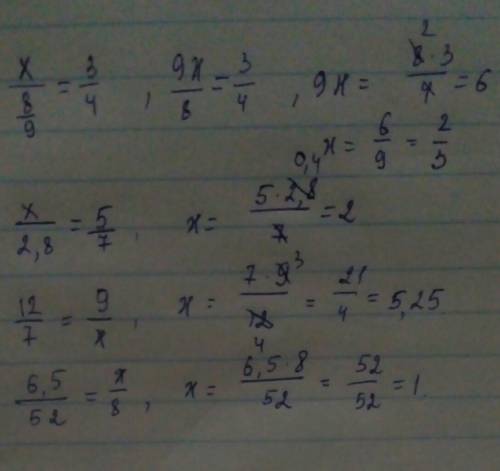 x/(8/9) = 3/4, 9x/8 = 3/4, 9x = (8·3)/4 = 6 2
x = 6/9 = 2/3
x/2,8 = 5/7, x = (5·2,8)/7 = 2 0,4
12/7 = 9/x, x = (7·9)/12 = 21/4 = 5,25 3 4
6,5/52 = x/8, x = (6,5·8)/52 = 52/52 = 1